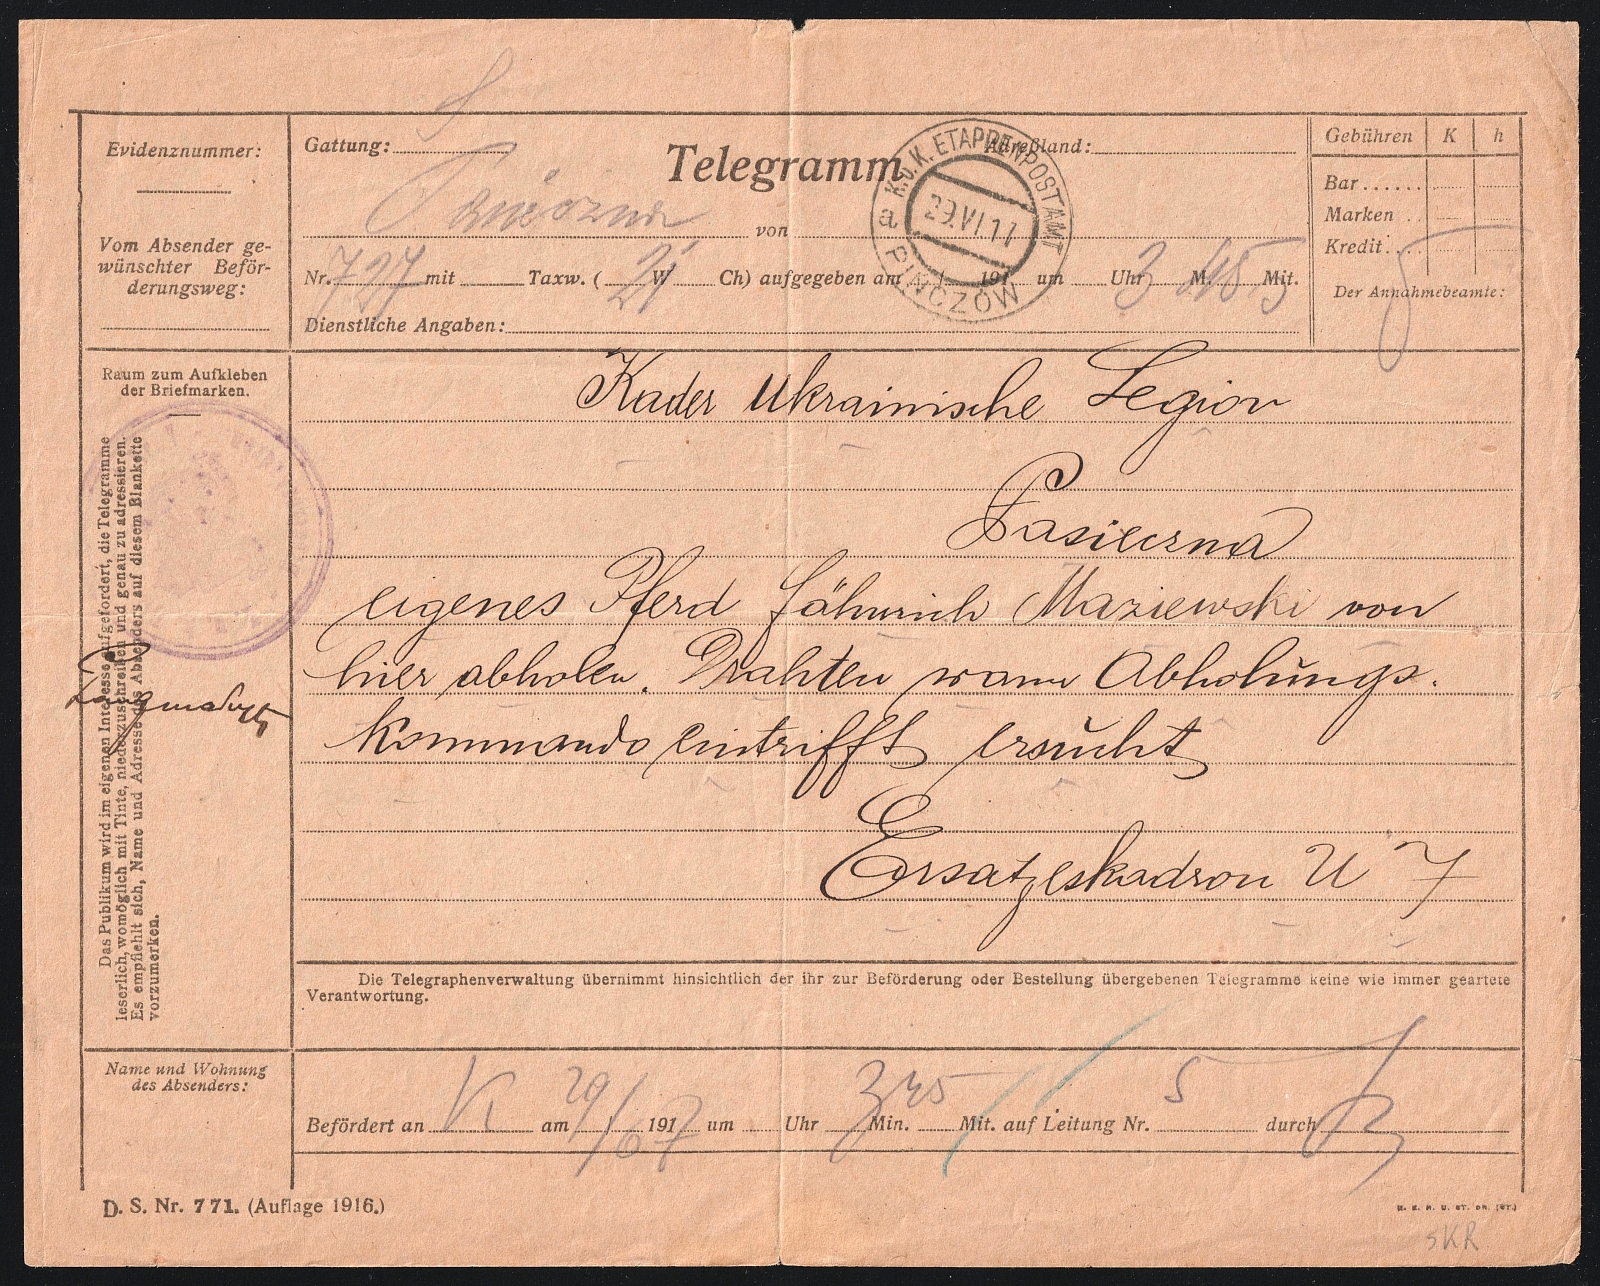 Evidenznummer:
Vom Absender ge-
wünschter Beför-
derungsweg:
Gattung:
Telegramm
Adreßland:
von
Nr. 727 mit Taxw. ( 21 W Ch) aufgegeben am 191 um Uhr 3 M. 45 Mit.
Dienstliche Angaben:
K.U.K. ETAPPENPOSTAMT
a
29.VI.17
PINCZÓW
Gebühren K h
Bar
Marken
Kredit
Der Annahmebeamte:
Raum zum Aufkleben
der Briefmarken.
Das Publikum wird im eigenen Interesse aufgefordert, die Telegramme
leserlich, womöglich mit Tinte, niederzuschreiben und genau zu adressieren.
Es empfiehlt sich, Name und Adresse des Absenders auf diesem Blankette
vorzumerken.
Kader Ukrainische Legion
Pasieczna
eigenes Pferd Fähnrich Maziewski von
hier abholen. Drahten wann Abholungs.
kommando eintrifft ersucht
Ersatzeskadron U 7
Die Telegraphenverwaltung übernimmt hinsichtlich der ihr zur Beförderung oder Bestellung übergebenen Telegramme keine wie immer geartete
Verantwortung.
Name und Wohnung
des Absenders:
Befördert an am 29/6 1917 um Uhr 3 45 Min. Mit. auf Leitung Nr. 5 durch
D. S. Nr. 771. (Auflage 1916.)
SKR